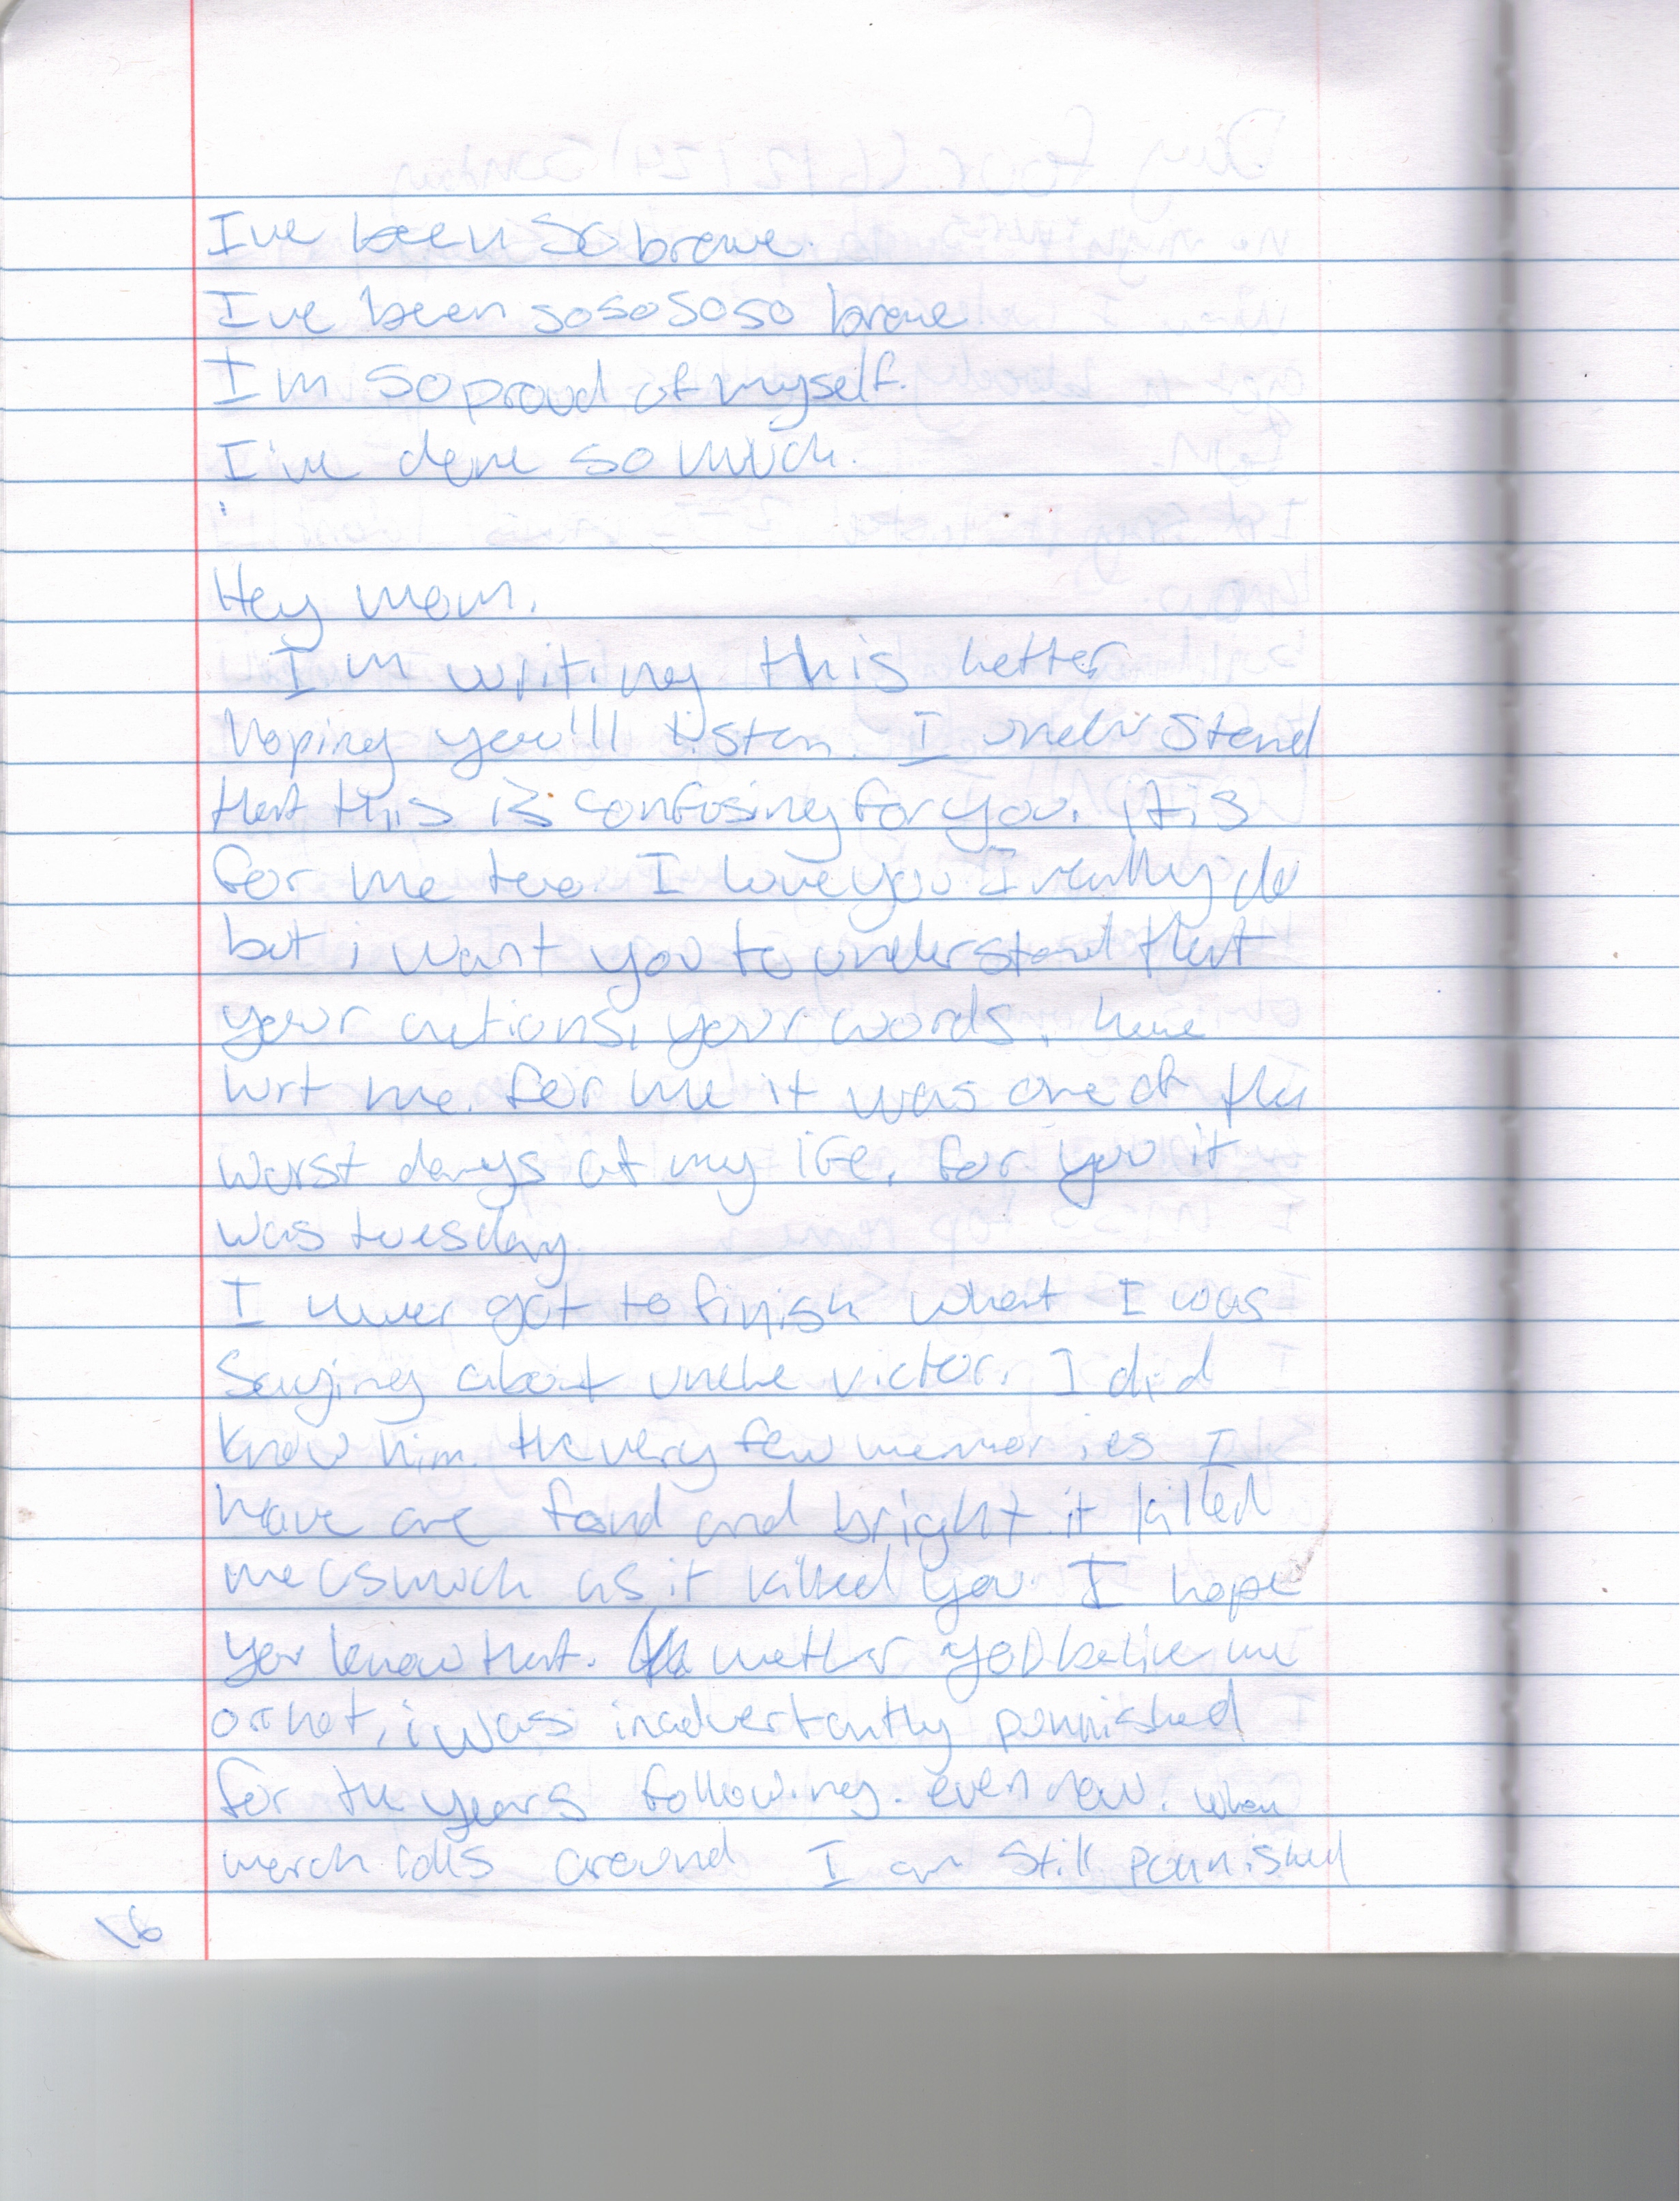 I've been so brave.
I've been sosososo brave
Im so proud of myself.
I've done so much.
Hey mom.
Im writing this letter
hoping you'll listen. I understand
that this is confusing for you. it is
for me too. I love you I really do
but i want you to understand that
your actions, your words, have
hurt me. for me it was one of the
worst days of my life. for you it
was tuesday.
I never got to finish what I was
saying about uncle victor. I did
know him. the very few memories I
have are fond and bright it killed
me as much as it killed you. I hope
you know that. wether you belive me
or not, i was inadvertantly punnished
for the years following. even now. when
march rolls around I am still punnished
16